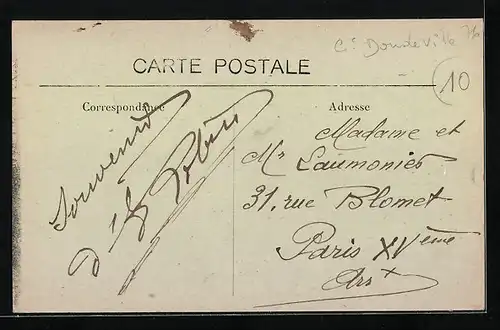 Cⁿ Doudeville 76
10
CARTE POSTALE
Correspondance
Adresse
Souvenir
d'
Madame et
Mr Laumonier
31, rue Blomet
Paris XVème
Arrt